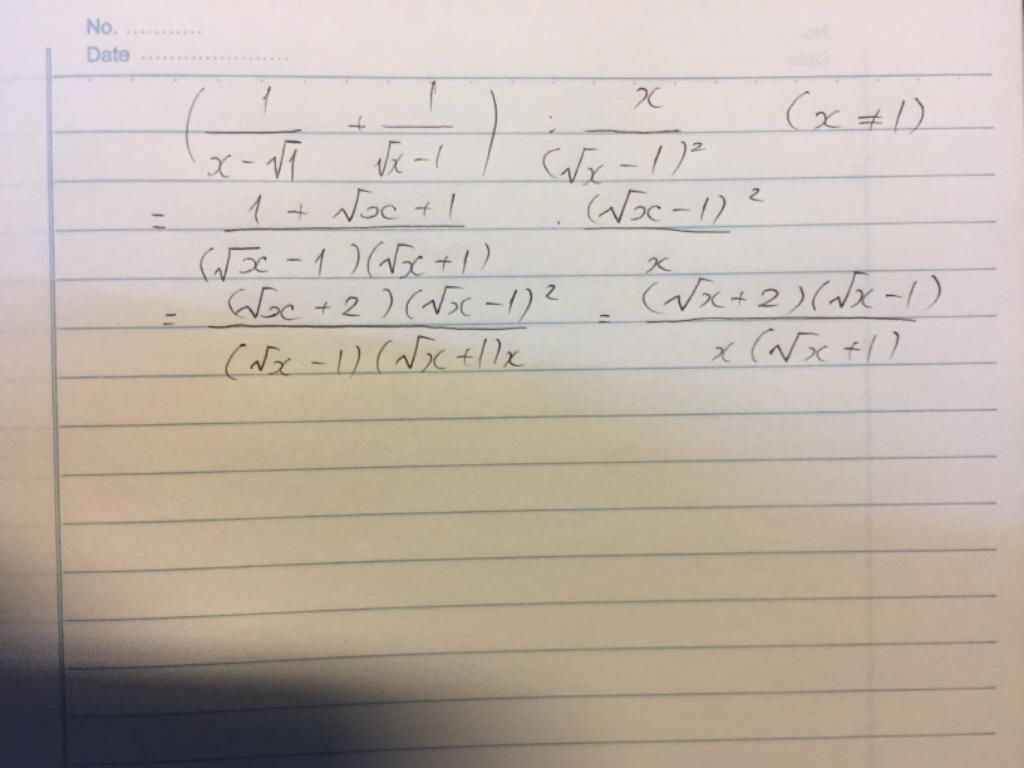 No. ...........
Date .....................
( 1/(x - √1) + 1/(√x - 1) ) : x/(√x - 1)² (x ≠ 1)
= (1 + √x + 1)/((√x - 1)(√x + 1)) · (√x - 1)²/x
= (√x + 2)(√x - 1)²/((√x - 1)(√x + 1)x) = (√x + 2)(√x - 1)/(x(√x + 1))